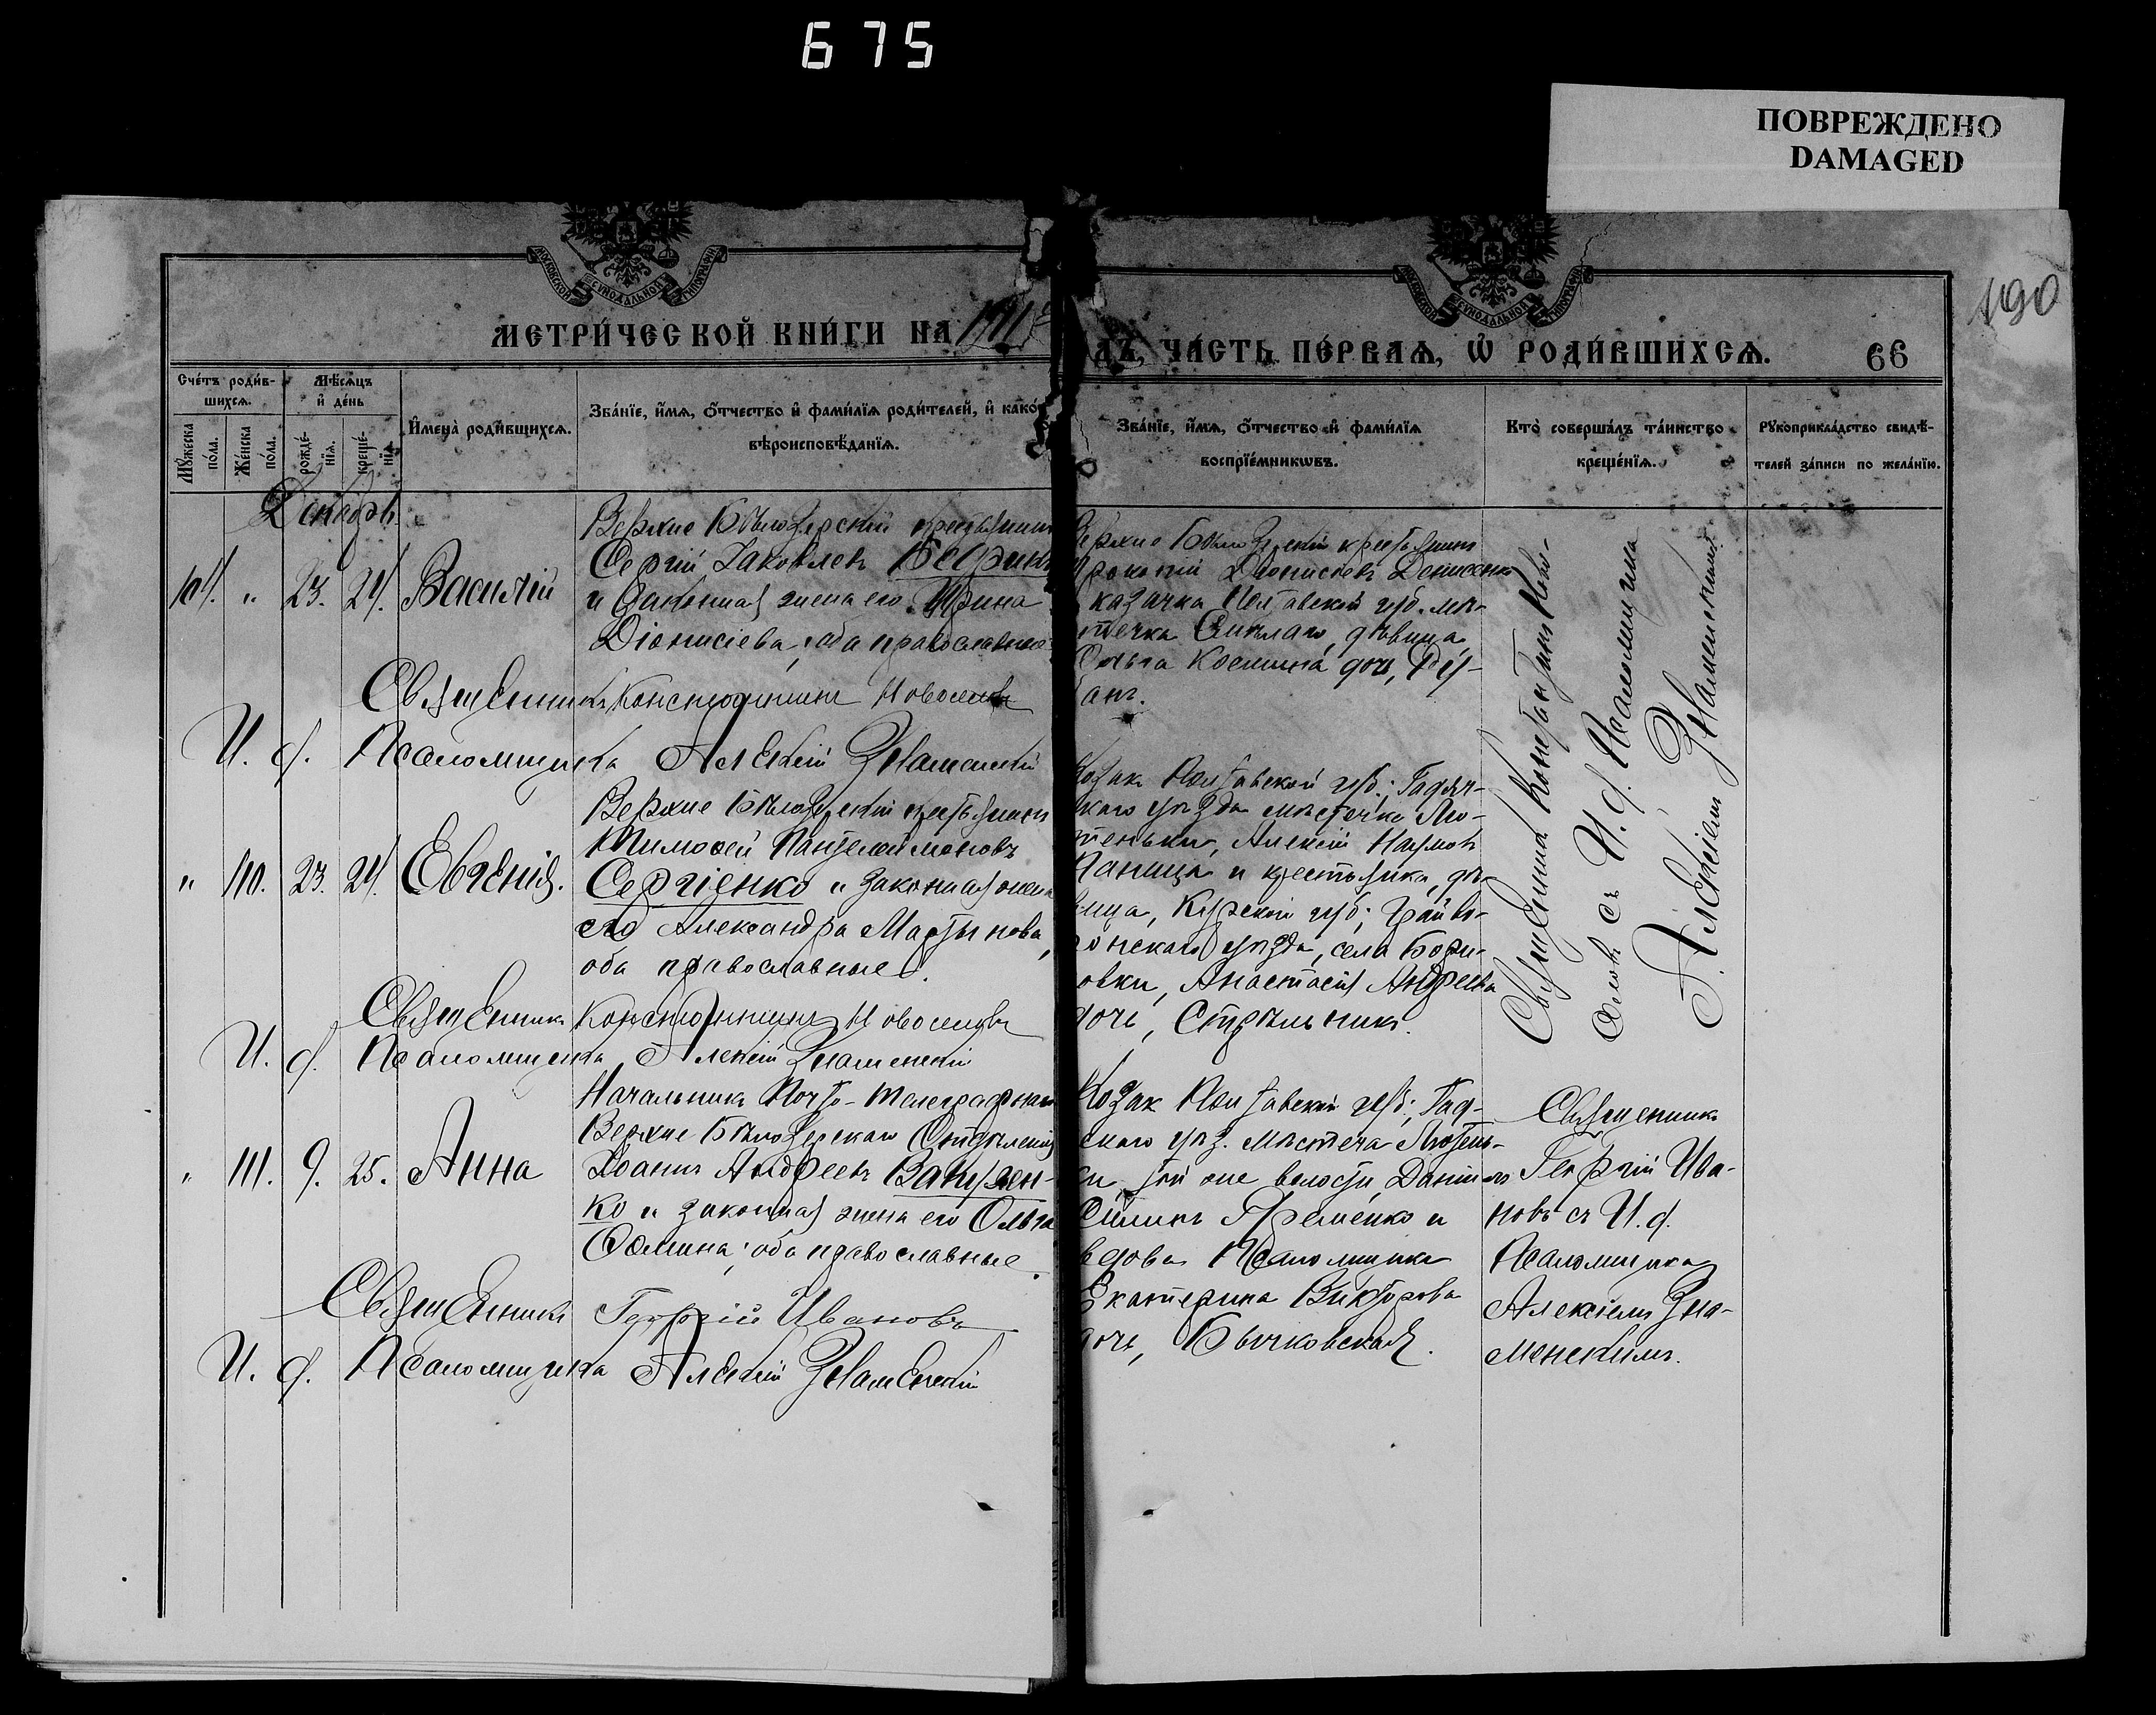 675
ПОВРЕЖДЕНО
DAMAGED
МОСКОВСКОЙ СѴНОДАЛЬНОЙ ТИПОГРАФІИ
МОСКОВСКОЙ СѴНОДАЛЬНОЙ ТИПОГРАФІИ
МЕТРИ́ЧЕСКОЙ КНИ́ГИ НА
ДЪ, ЧА́СТЬ ПЕ́РВАѦ, Ѿ РОДИ́ВШИХСѦ.
66
190
Сче́тъ роди́в-
шихсѧ.
Мѣ́сѧцъ
и҆ де́нь
Мꙋ́жеска
по́ла.
Же́нска
по́ла.
рожде́-
нїѧ.
креще́-
нїѧ.
И҆мена̀ роди́вшихсѧ.
Зва́нїе, и҆́мѧ, ѻ҆́тчество и҆ фами́лїѧ роди́телей, и҆ како́
вѣроисповѣ́данїѧ.
Зва́нїе, и҆́мѧ, ѻ҆́тчество и҆ фами́лїѧ
воспрїе́мникѡвъ.
Кто̀ соверша́лъ та́инство
креще́нїѧ.
Рꙋкоприкла́дство свидѣ́-
телей за́писи по жела́нїю.
Декабрь.
" 23. 24. Василій
Верхне Бѣлозерскій крестьянинъ
Сергій Іаковлевъ
и законная жена его Ирина
Діонисіева; оба православные
Верхне Бѣлозерскій крестьянинъ
Діонисіевъ Денисенко
казачка Полтавской губ. мѣ-
стечка дѣвица,
Ольга Космина дочь,
Священникъ Константинъ Новоселовъ
И. д. Псаломщика Алексій Знаменскій
Священникъ Константинъ Ново-
селовъ съ И. д. Псаломщика
Алексіемъ Знаменскимъ
" 110. 23. 24. Евгенія.
Верхне Бѣлозерскій крестьянинъ
Тимоѳей Пантелеимоновъ
Сергіенко и законная жена
его Александра Мартынова,
оба православные.
Козакъ Полтавской губ.; Гадяч-
каго уѣзда мѣстечка Лю-
теньки, Алексій Наумовъ
Паница и крестьянка, дѣ-
вица, Курской губ; Грайво-
ронскаго уѣзда, села Бори-
совки, Анастасія Андреева
дочь, Стрѣльникъ.
Священникъ Константинъ Новоселовъ
И. д. Псаломщика Алексій Знаменскій
" 111. 9. 25. Анна
Начальникъ Почто-Телеграфнаго
Верхне Бѣлозерскаго Отдѣленія
Іоаннъ Андреевъ Вакулен-
ко и законная жена его Ольга
Ѳомина; оба православные.
Козак Полтавской губ.; Гад-
скаго уѣз. мѣстеча Лютень-
ки, той же волости, Даніилъ
и
вдова Псаломщика
Екатерина Викторова
дочь, Бычковская.
Священникъ
Георгій Ива-
новъ съ И. д.
Псаломщика
Алексіемъ Зна-
менскимъ.
Священникъ Георгій Ивановъ
И. д. Псаломщика Алексій Знаменскій